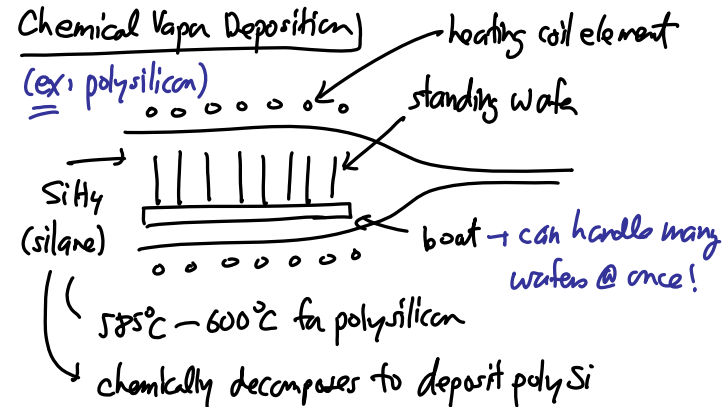 Chemical Vapor Deposition
(ex, polysilicon)
heating coil element
standing wafer
SiH4
(silane)
boat → can handle many
wafers @ once!
585°C – 600°C for polysilicon
chemically decomposes to deposit poly Si